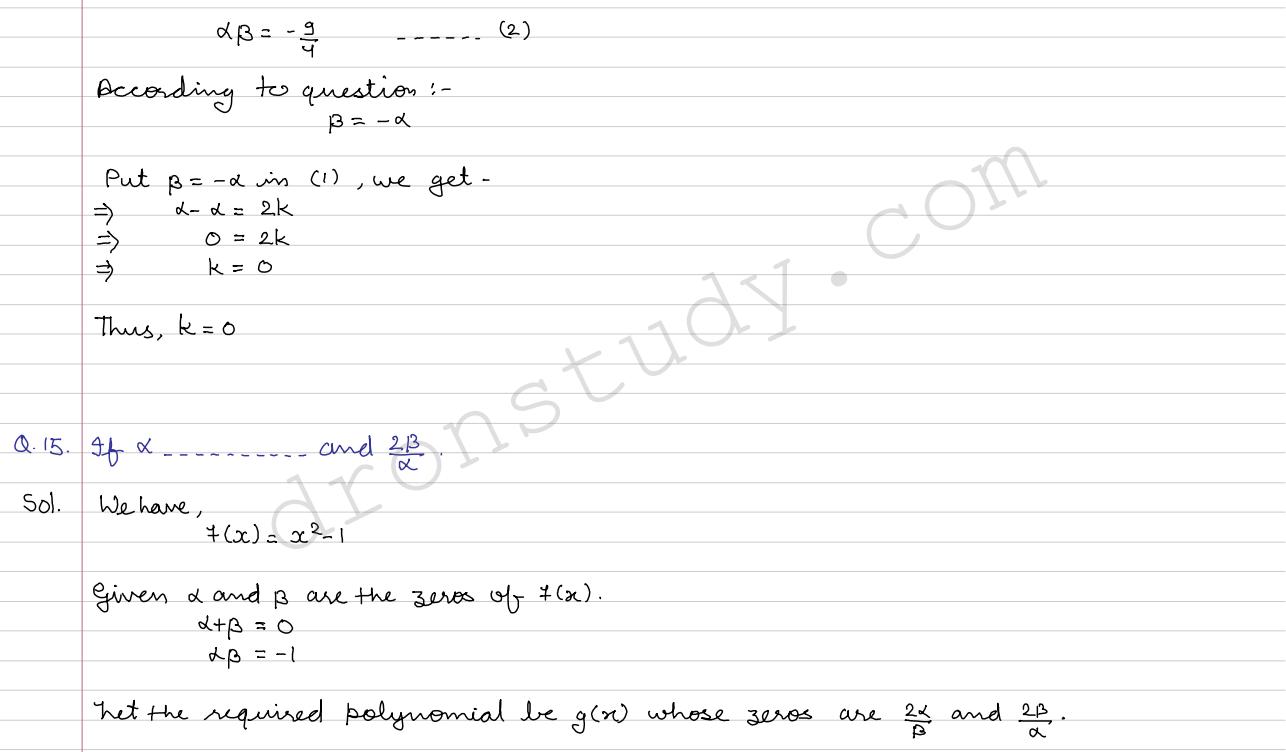 αβ = -9/4 ------ (2)
According to question :-
β = -α
Put β = -α in (1), we get -
⇒ α - α = 2k
⇒ 0 = 2k
⇒ k = 0
Thus, k = 0
Q.15. If α ---------- and 2β/α.
Sol. We have,
f(x) = x² - 1
Given α and β are the zeros of f(x).
α+β = 0
αβ = -1
Let the required polynomial be g(x) whose zeros are 2α/β and 2β/α.
dronstudy.com